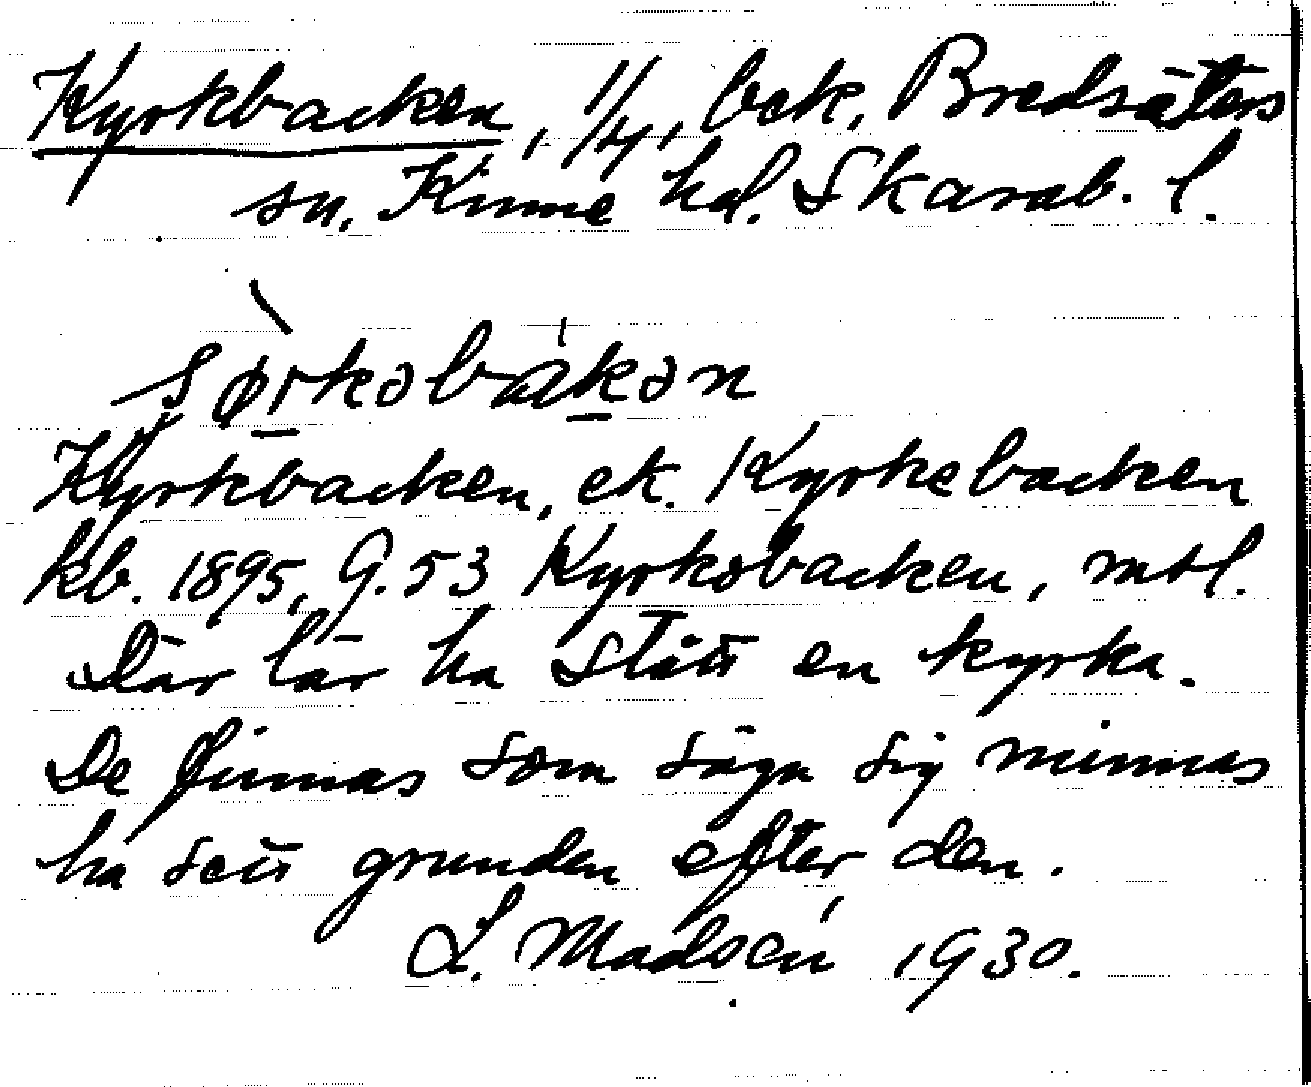 Kyrkbacken, 1/4, bek, Bredsäters
sn, Kinne hd. Skarab. l.
sørkobakən
Kyrkbacken, ek. Kyrkebacken
kb. 1895, G. 53 Kyrkobacken, mtl.
Där lär ha stått en kyrka.
De finnas som säga sig minnas
ha sett grunden efter den.
L. Madsén 1930.